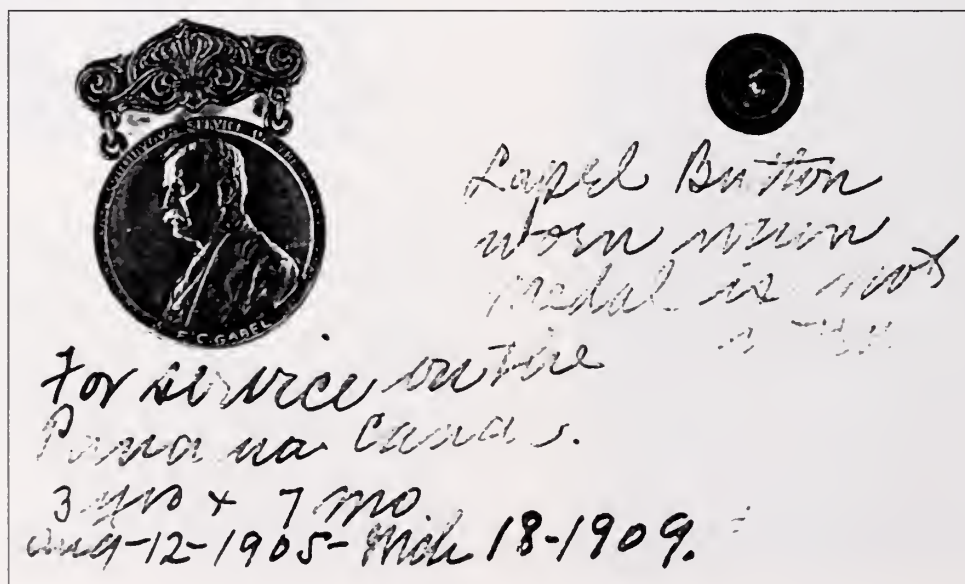 SERVICE
F.C. GABEL
Lapel Button
worn when
medal is not
For service on the
Panama Canal.
3 yrs + 7 mo.
Aug-12-1905-Mch 18-1909.